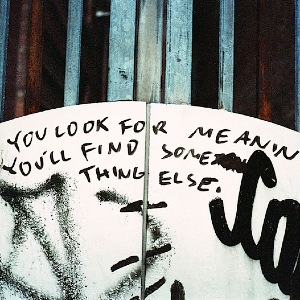 YOU LOOK FOR MEANIN
YOU'LL FIND SOME
THING ELSE.